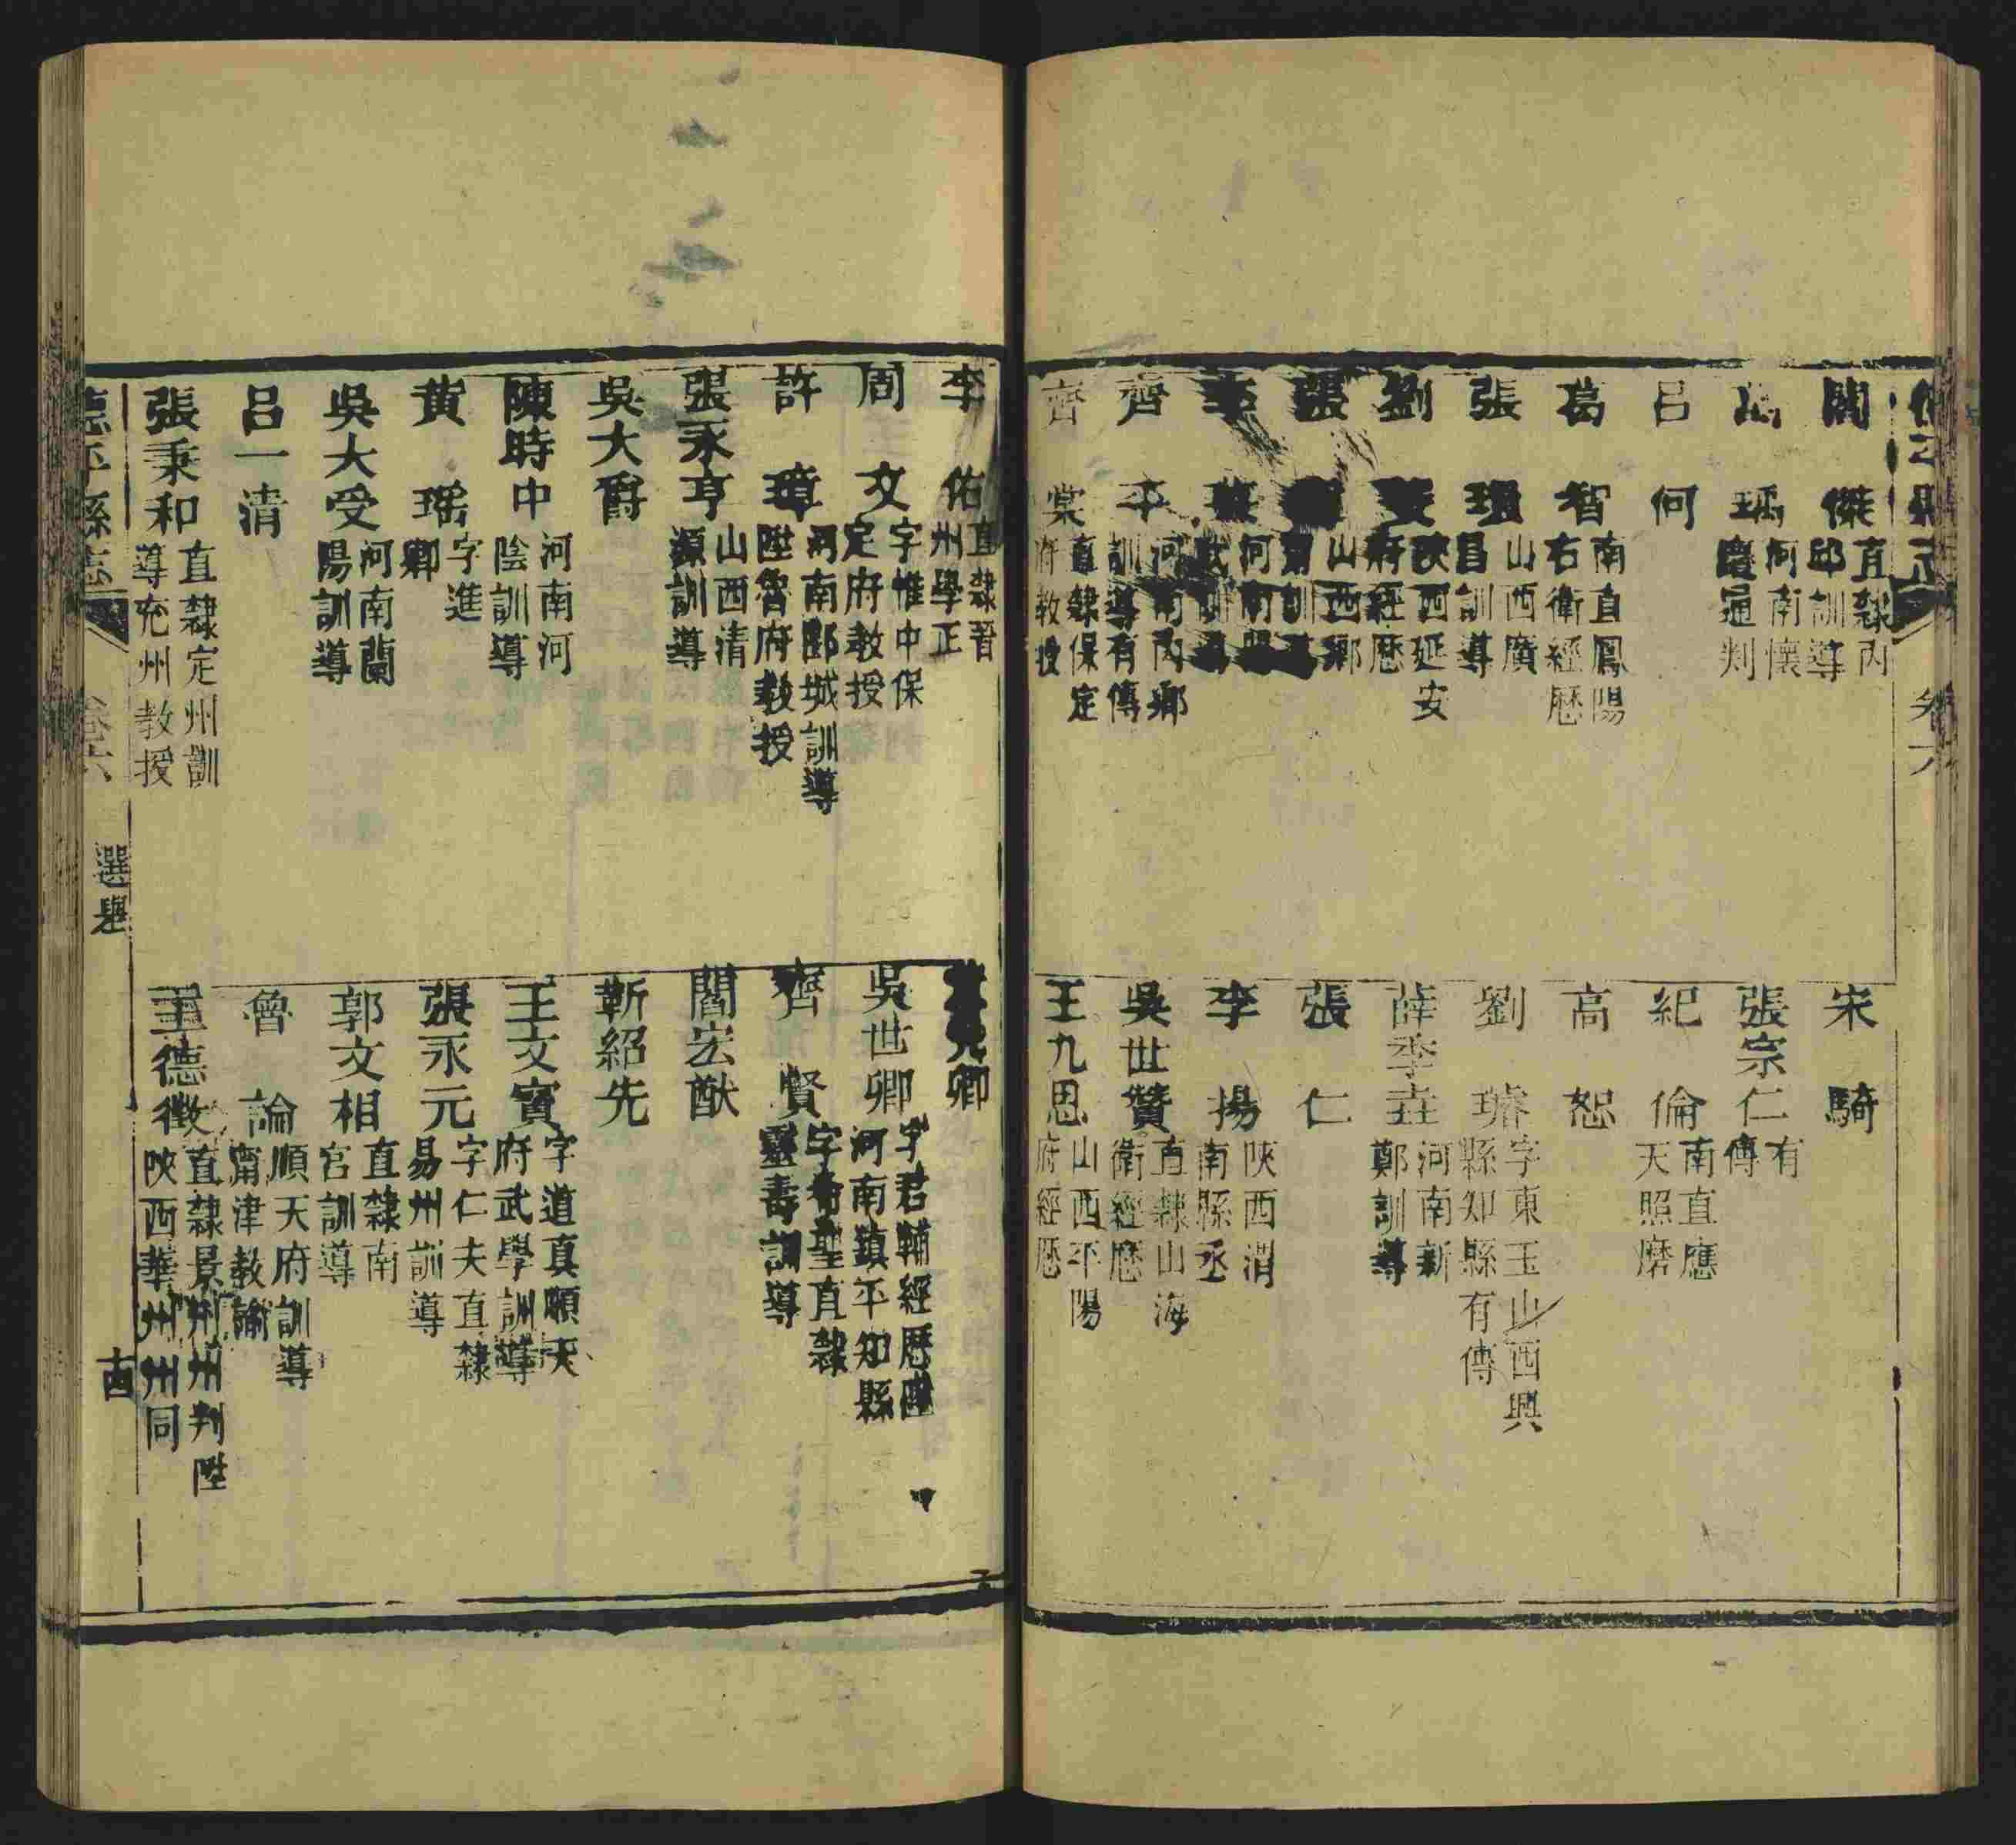 卷六
閻傑 直隸內邱訓導
瑀 河南懷慶通判
呂何
葛智 南直鳳陽右衛經歷
張 山西廣昌訓導
劉 陝西延安府經歷
張 山西鄉訓
李 河南武訓導
齊平 河南內鄉訓導有傳
齊棠 直隸保定府教授
宋騎
張宗仁 有傳
紀倫 南直應天照磨
高恕
劉璿 字東玉山西興縣知縣有傳
薛季垚 河南新鄭訓導
張仁
李揚 陝西渭南縣丞
吳世贊 直隸山海衛經歷
王九恩 山西平陽府經歷
李佑 直隸晉州學正
周文 字惟中保定府教授
許璋 河南郾城訓導陞魯府教授
張永亨 山西清源訓導
吳大爵
陳時中 河南河陰訓導
黃瑤 字進卿
吳大受 河南蘭陽訓導
呂一清
張秉和 直隸定州訓導充州教授
卿
吳世卿 字君輔經歷陞河南鎮平知縣
齊賢 字希聖直隸靈壽訓導
閻宏猷
靳紹先
王文寶 字道真順天府武學訓導
張永元 字仁夫直隸易州訓導
郭文相 直隸南宮訓導
魯論 順天府訓導甯津教諭
王德徵 直隸景州州判陞陝西華州州同
德平縣志 卷六 選舉